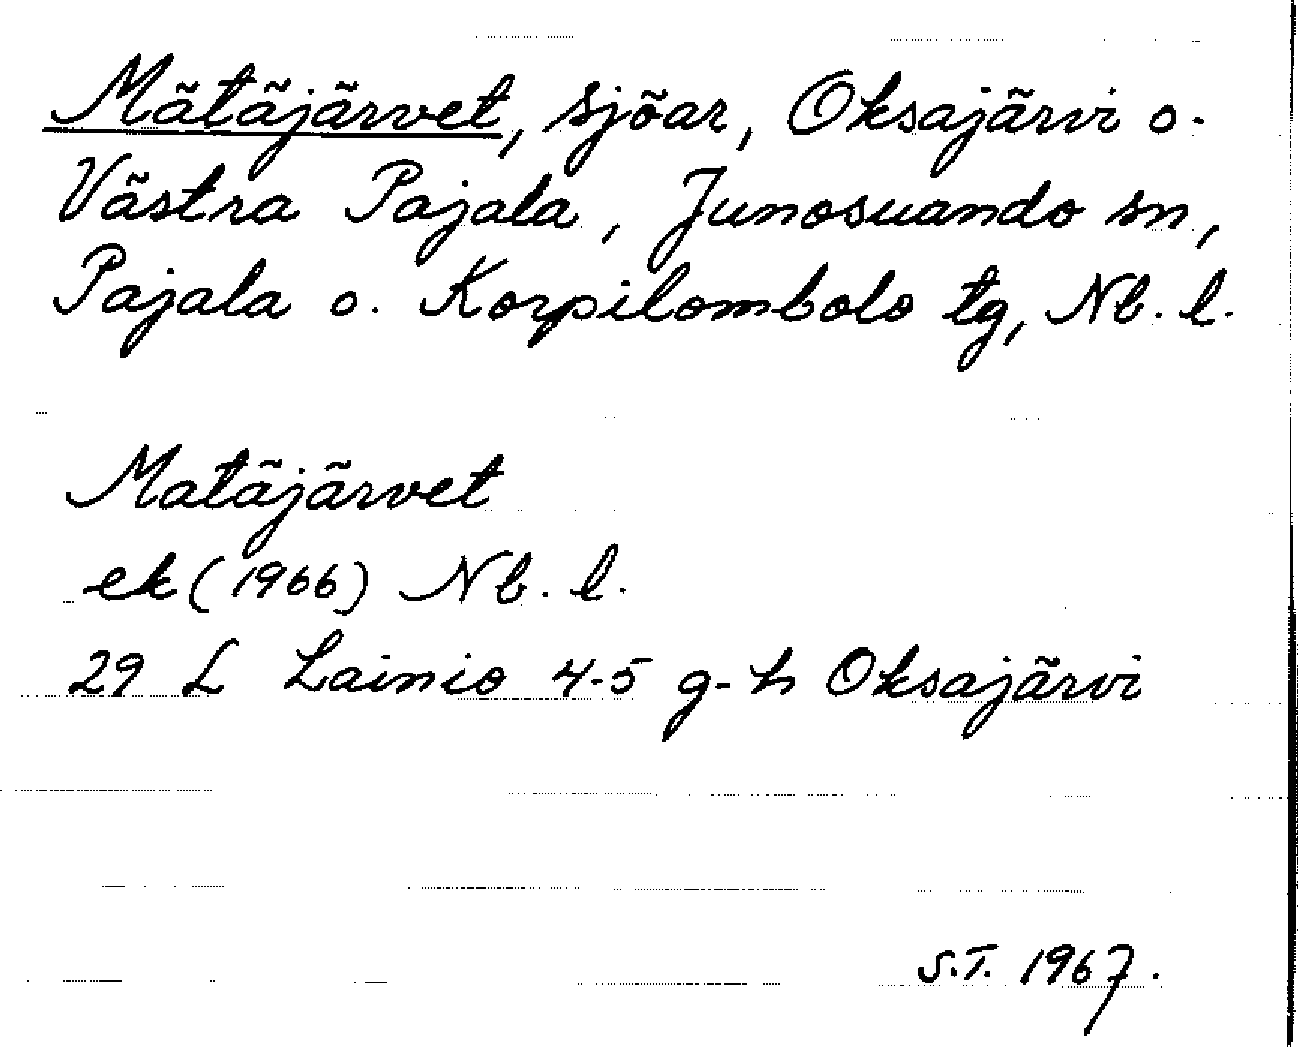 Mätäjärvet, sjöar, Oksajärvi o.
Västra Pajala, Junosuando sn,
Pajala o. Korpilombolo tg, Nb. l.
Matäjärvet
ek (1966) Nb. l.
29 L Lainio 4-5 g-h Oksajärvi
S.T. 1967.